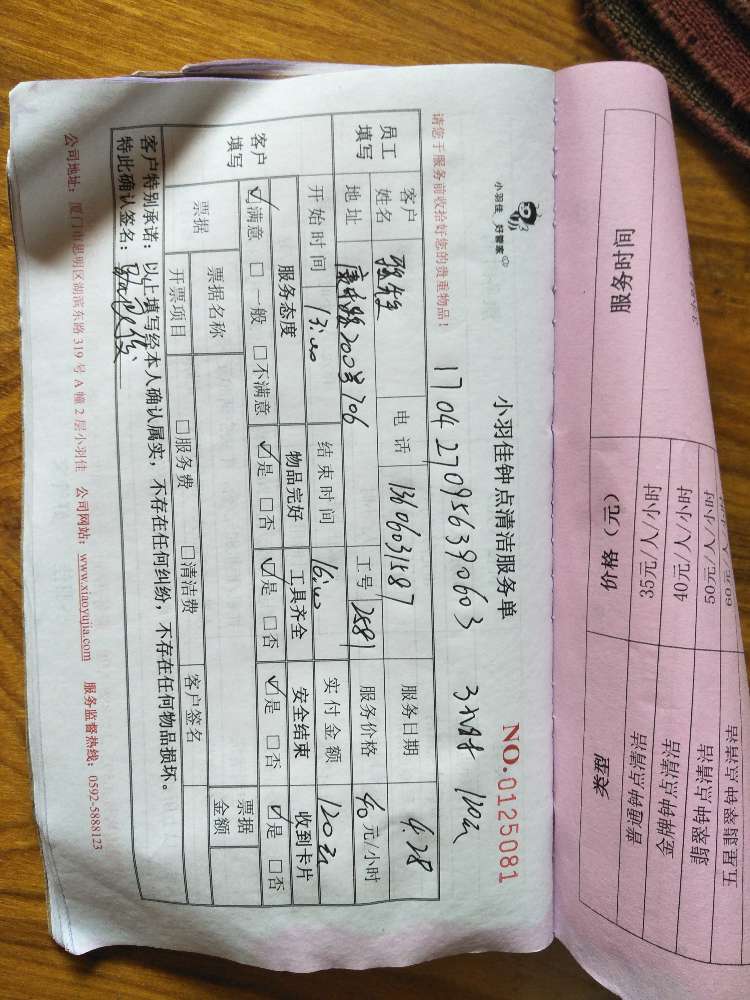 小羽佳 好管家
小羽佳钟点清洁服务单
NO.0125081
1704270956390603 3小时 120元
请您于服务前收拾好您的贵重物品！
员工填写
客户姓名 张先生 电话 13606031587 服务日期 4.28
地址 200号706 工号 2581 服务价格 40元/小时
开始时间 13:00 结束时间 16:00 实付金额 120元
客户填写
服务态度 物品完好 工具齐全 安全结束 收到卡片
☑满意 □一般 □不满意 ☑是 □否 ☑是 □否 ☑是 □否 ☑是 □否
票据 票据名称 票据金额
开票项目 □服务费 □清洁费 客户签名
客户特别承诺：以上填写经本人确认属实，不存在任何纠纷，不存在任何物品损坏。
特此确认签名：
公司地址：厦门市思明区湖滨东路319号A幢2层小羽佳 公司网站：www.xiaoyujia.com 服务监督热线：0592-5888123
服务时间 价格（元） 类型
35元/人/小时 普通钟点清洁
40元/人/小时 金牌钟点清洁
50元/人/小时 翡翠钟点清洁
五星翡翠钟点清洁